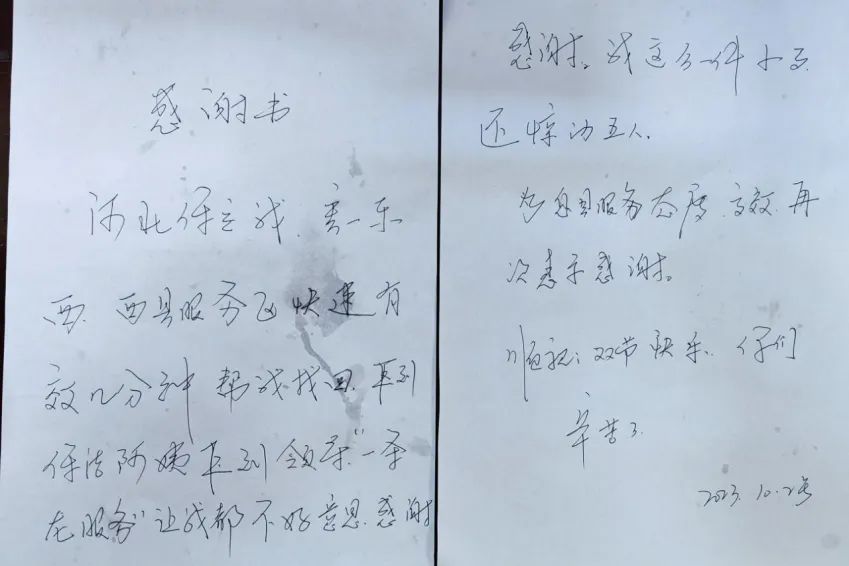 感谢书
河北保定我.
西. 西县服务区快速有
效几分钟 帮我找回. 
保洁阿姨 到领导"一条
龙服务"让我都不好意思.感谢
感谢. 我这么一件小事
还惊动五人.
服务态度.高效.再
次表示感谢.
顺祝:双节快乐. 你们
辛苦了.
2023.10.2号